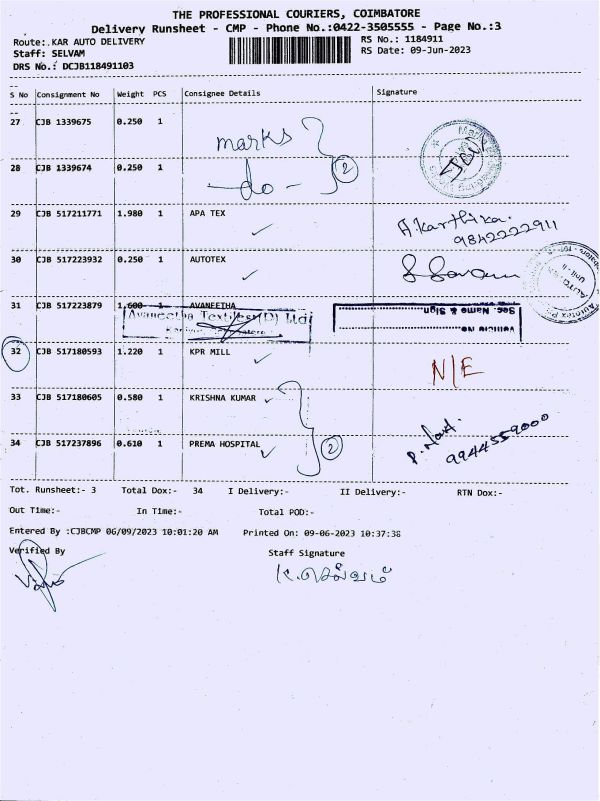 THE PROFESSIONAL COURIERS, COIMBATORE
Delivery Runsheet - CMP - Phone No.:0422-3505555 - Page No.:3
Route:.KAR AUTO DELIVERY
RS No.: 1184911
Staff: SELVAM
RS Date: 09-Jun-2023
DRS No.: DCJB118491103
S No Consignment No Weight PCS Consignee Details Signature
27 CJB 1339675 0.250 1 marks
28 CJB 1339674 0.250 1 -do- 2
29 CJB 517211771 1.980 1 APA TEX A.Karthika. 9842222911
30 CJB 517223932 0.250 1 AUTOTEX
31 CJB 517223879 1.600 1 AVANEETHA
Avaneetha Textiles (P) Ltd
Sec. Name & Sign.
Vehicle No.
32 CJB 517180593 1.220 1 KPR MILL N/E
33 CJB 517180605 0.580 1 KRISHNA KUMAR
34 CJB 517237896 0.610 1 PREMA HOSPITAL 2 9944559000
Tot. Runsheet:- 3 Total Dox:- 34 I Delivery:- II Delivery:- RTN Dox:-
Out Time:- In Time:- Total POD:-
Entered By :CJBCMP 06/09/2023 10:01:20 AM Printed On: 09-06-2023 10:37:38
Verified By Staff Signature
க.செல்வம்